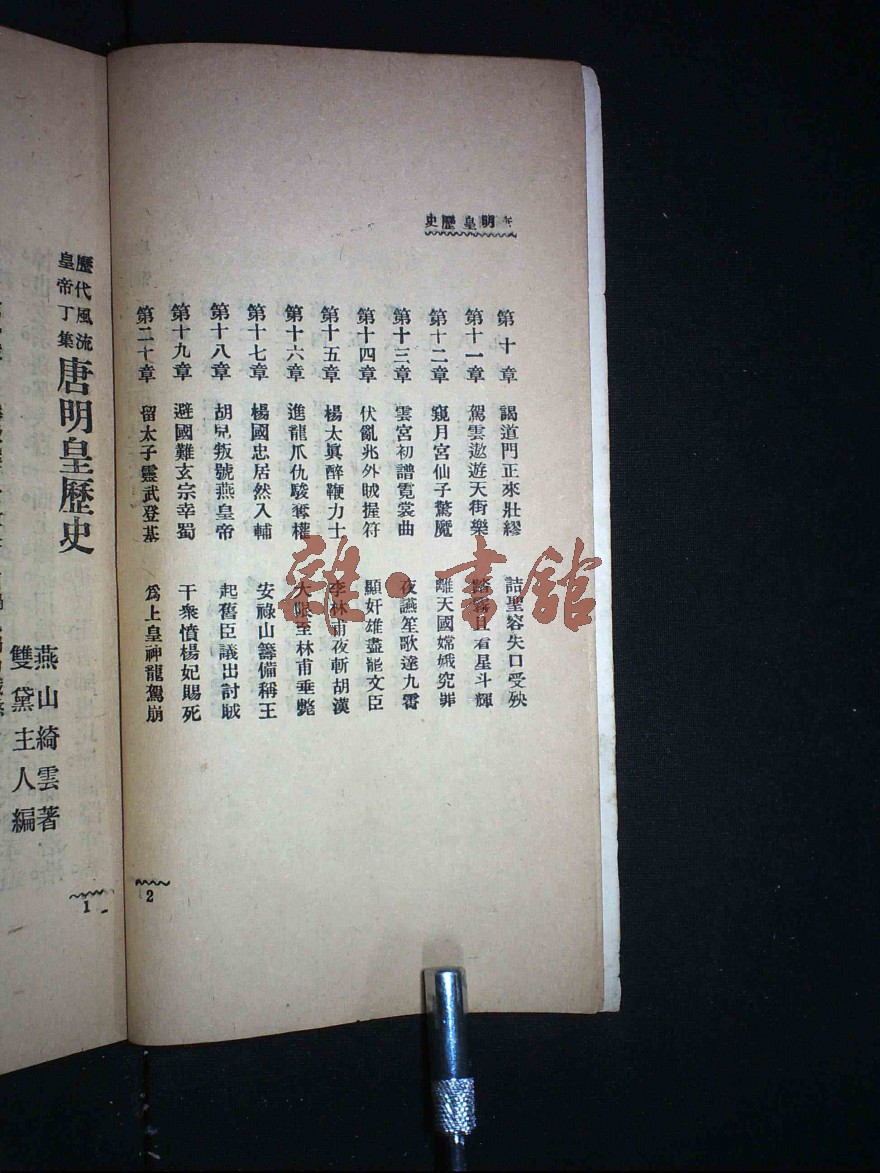 明皇歷史
第十章 謁道門正來壯繆 詰聖容失口受殃
第十一章 駕雲遨遊天街樂 且看星斗輝
第十二章 窺月宮仙子驚魔 離天國嫦娥究罪
第十三章 雲宮初譜霓裳曲 夜讌笙歌達九霄
第十四章 伏亂兆外賊握符 顯奸雄盡罷文臣
第十五章 楊太眞醉鞭力士 李林甫夜斬胡漢
第十六章 進龍爪仇駿奪權 大限至林甫垂斃
第十七章 楊國忠居然入輔 安祿山籌備稱王
第十八章 胡兒叛號燕皇帝 起舊臣議出討賊
第十九章 避國難玄宗幸蜀 干衆憤楊妃賜死
第二十章 留太子靈武登基 爲上皇神龍駕崩
2
歷代風流
皇帝丁集
唐明皇歷史
燕山綺雲著
雙黛主人編
1
雜·書館